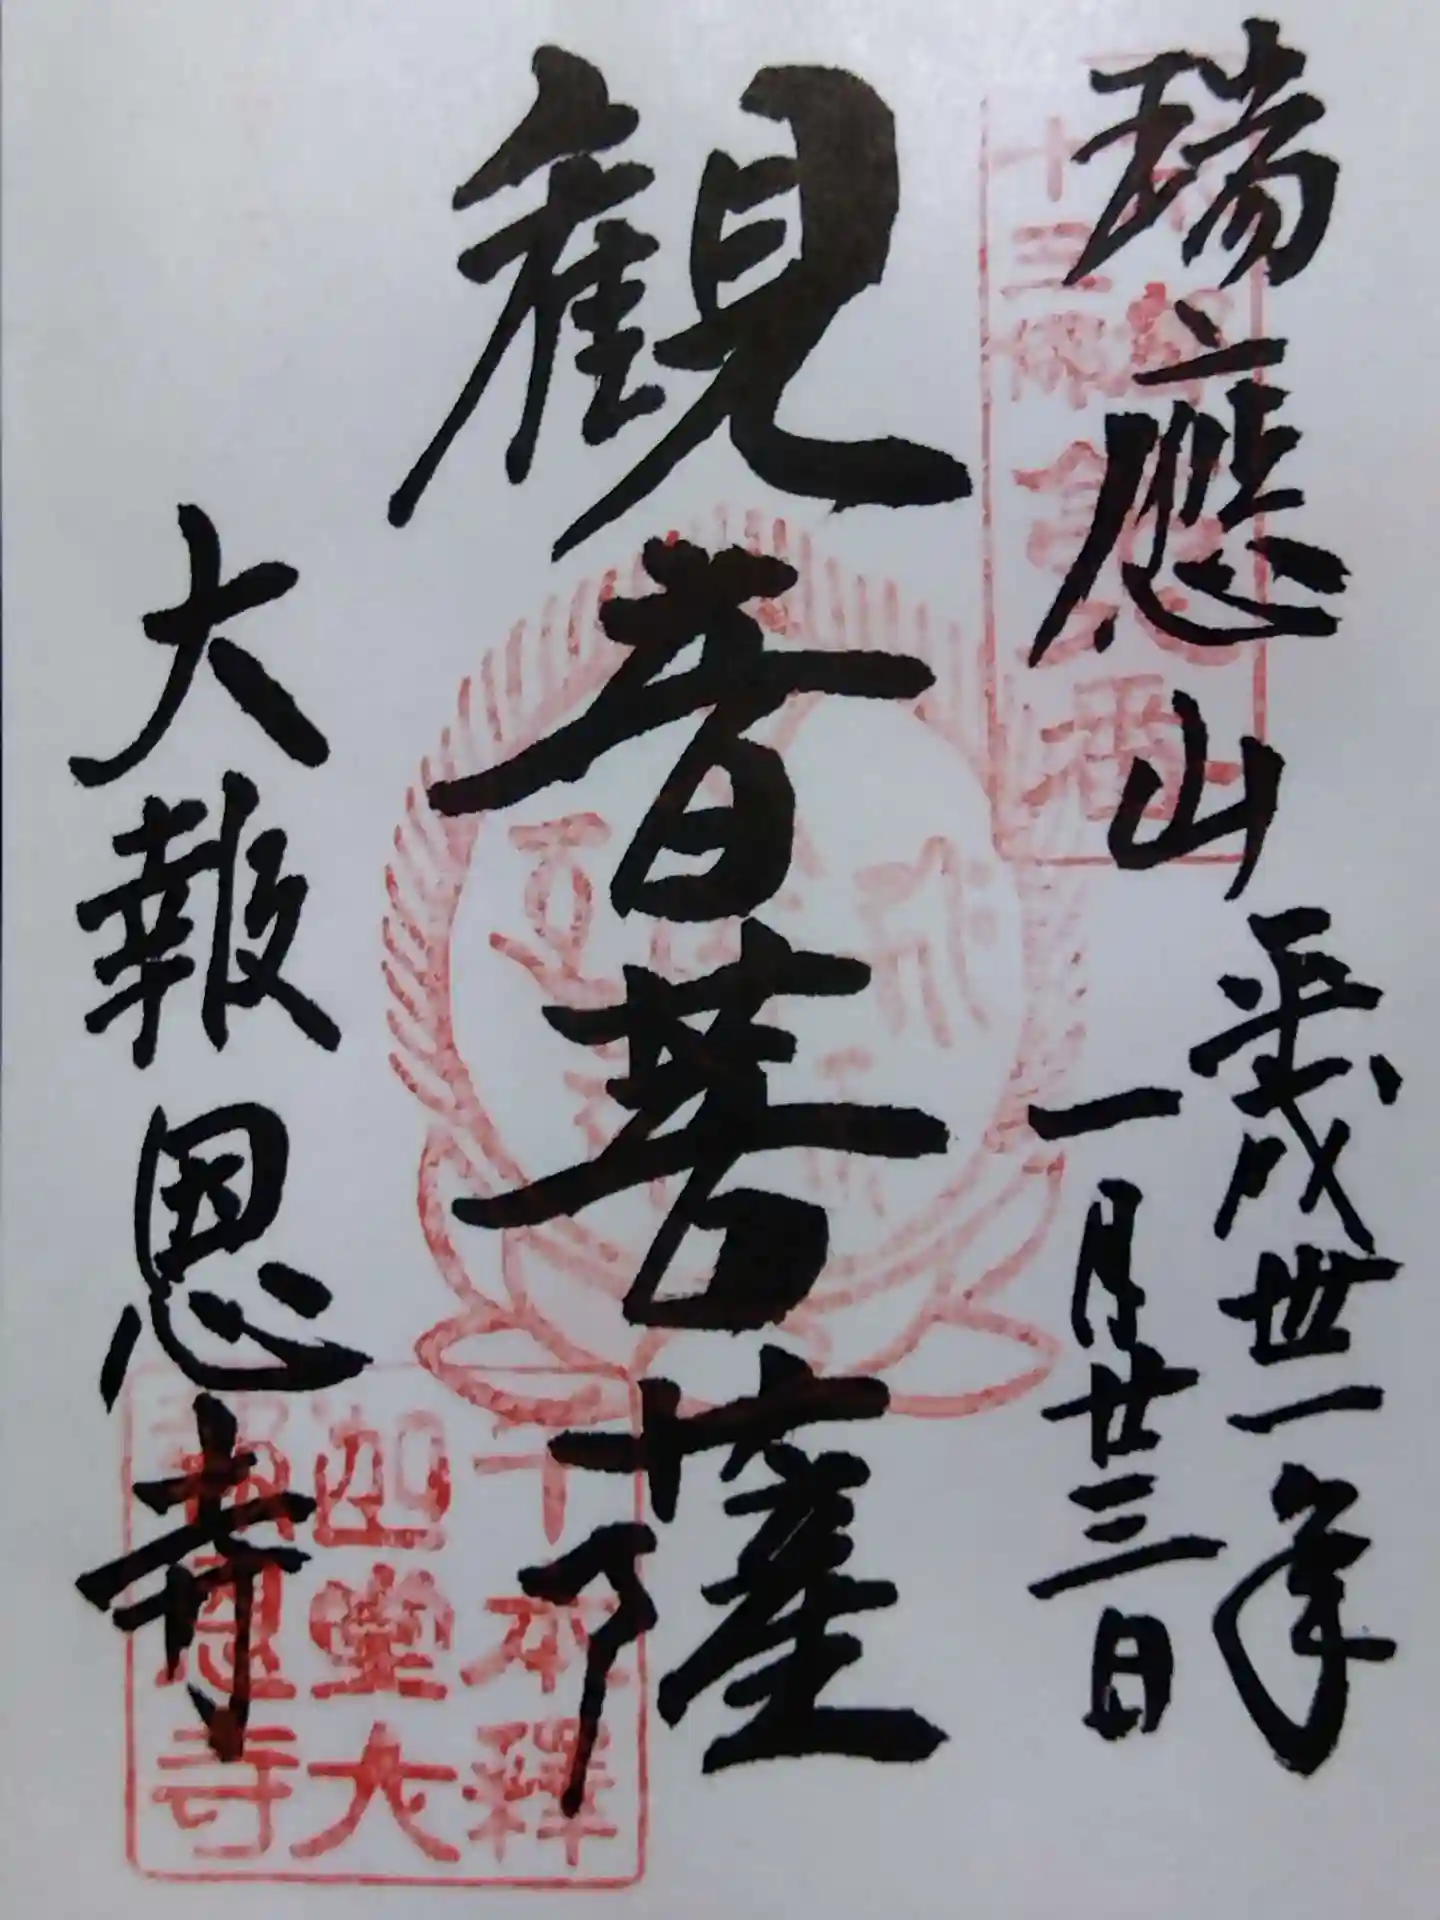 瑞應山
平成卅一年
一月廿三日
観音菩薩
大報恩寺
千本釋
迦堂大
報恩寺